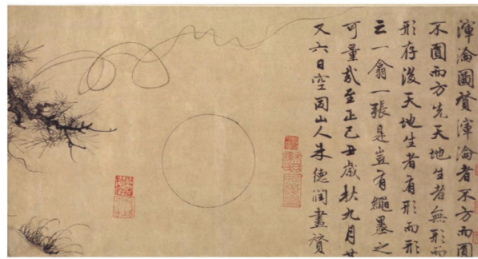 渾淪圖贊渾淪者不方而圓
不圓而方先天地生者無形而
形存後天地生者有形而形
亡一翕一張是豈有繩墨之
可量哉至正己丑歲秋九月廿
又六日空同山人朱德潤畫贊